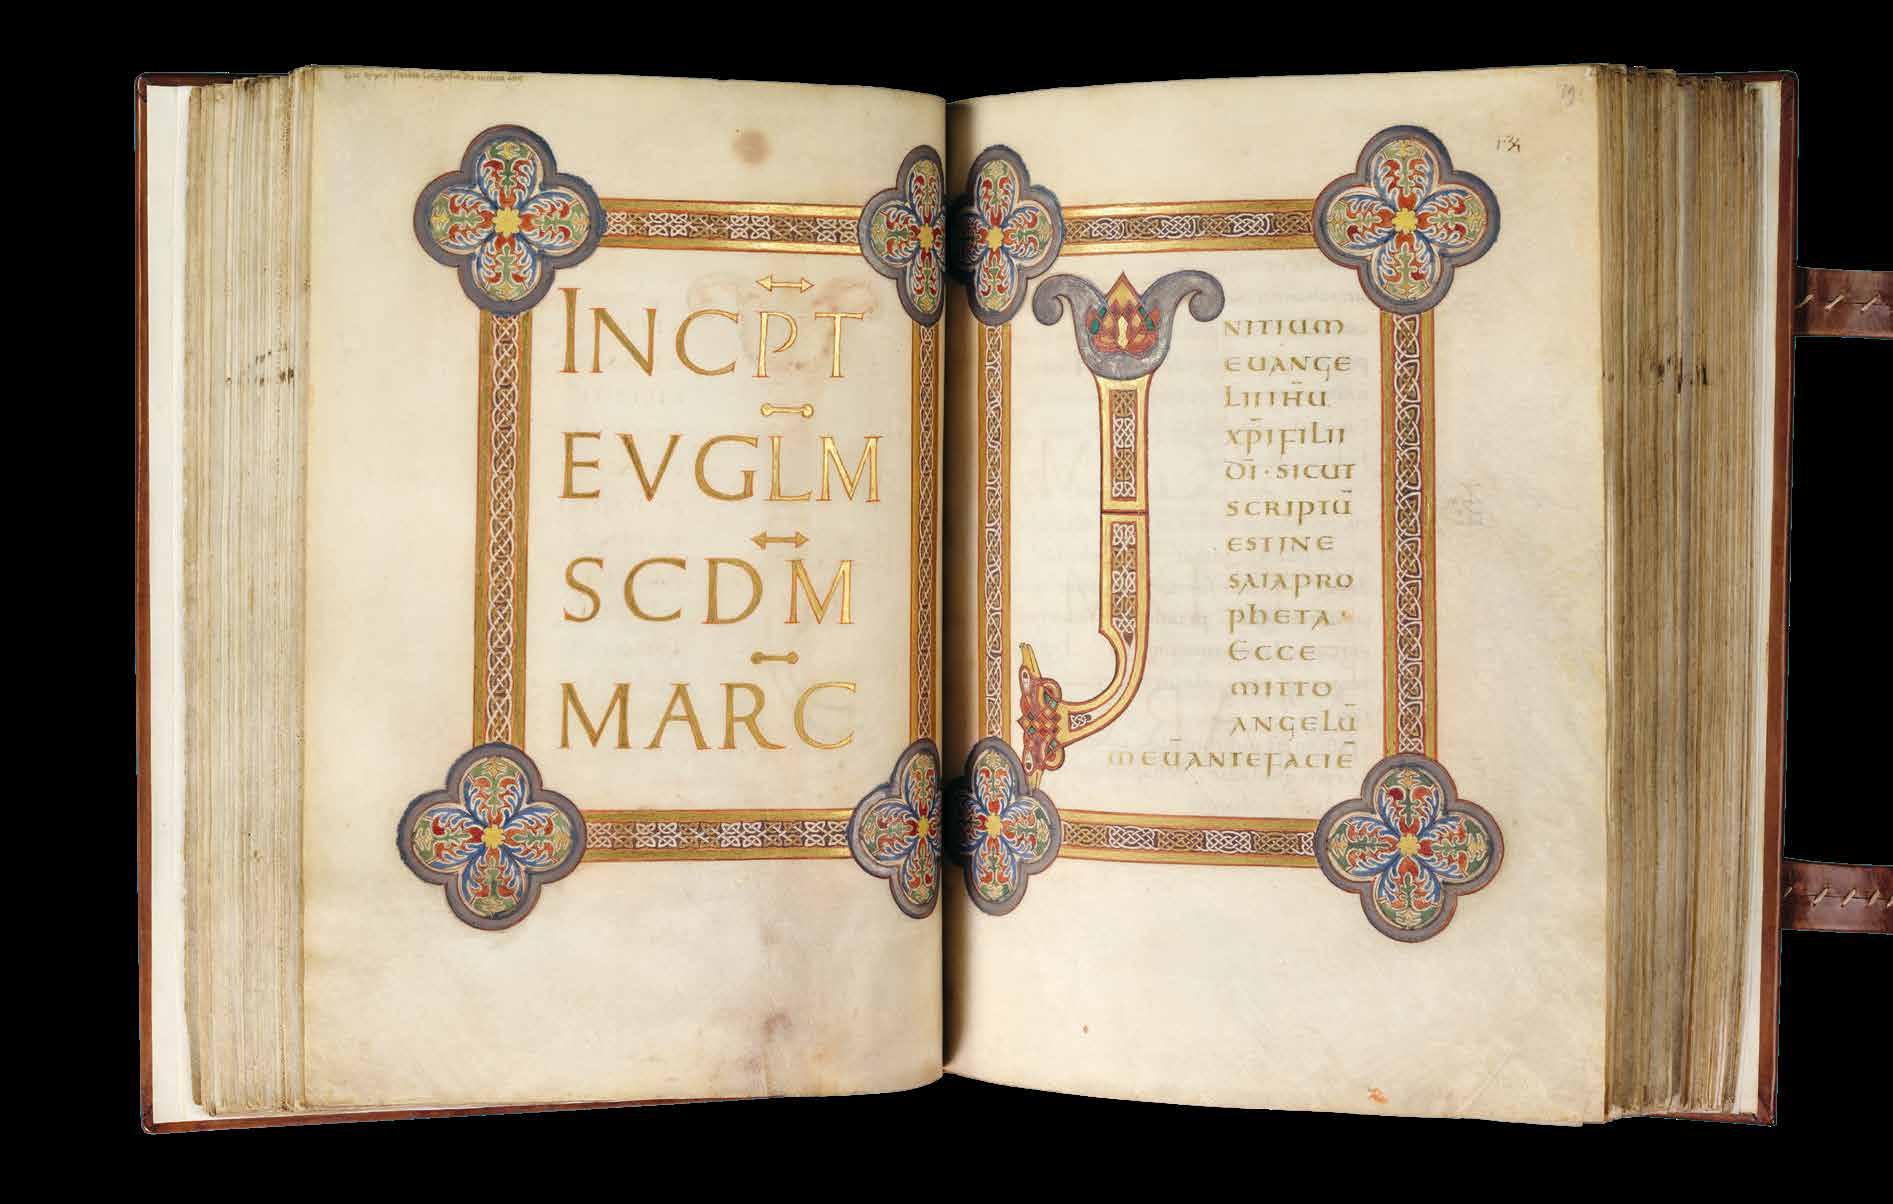 INCP̄T
EVGL̄M
SCDM̄
MARC̄
INITIUM
EUANGE
LII IH̄U
XP̄I FILII
DĪ · SICUT
SCRIPTŪ
EST IN E
SAIA PRO
PHETA ·
ECCE
MITTO
ANGELŪ
M̄EŪ ANTE FACIĒ